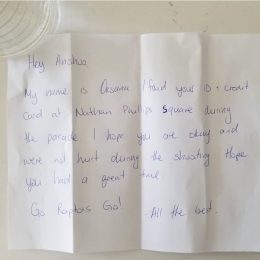 Hey Anshoo,
My name is Oksana I found your ID + credit
card at Nathan Phillips Square during
the parade. I hope you are okay and
were not hurt during the shooting. Hope
you had a great time.
Go Raptors Go! - All the best.